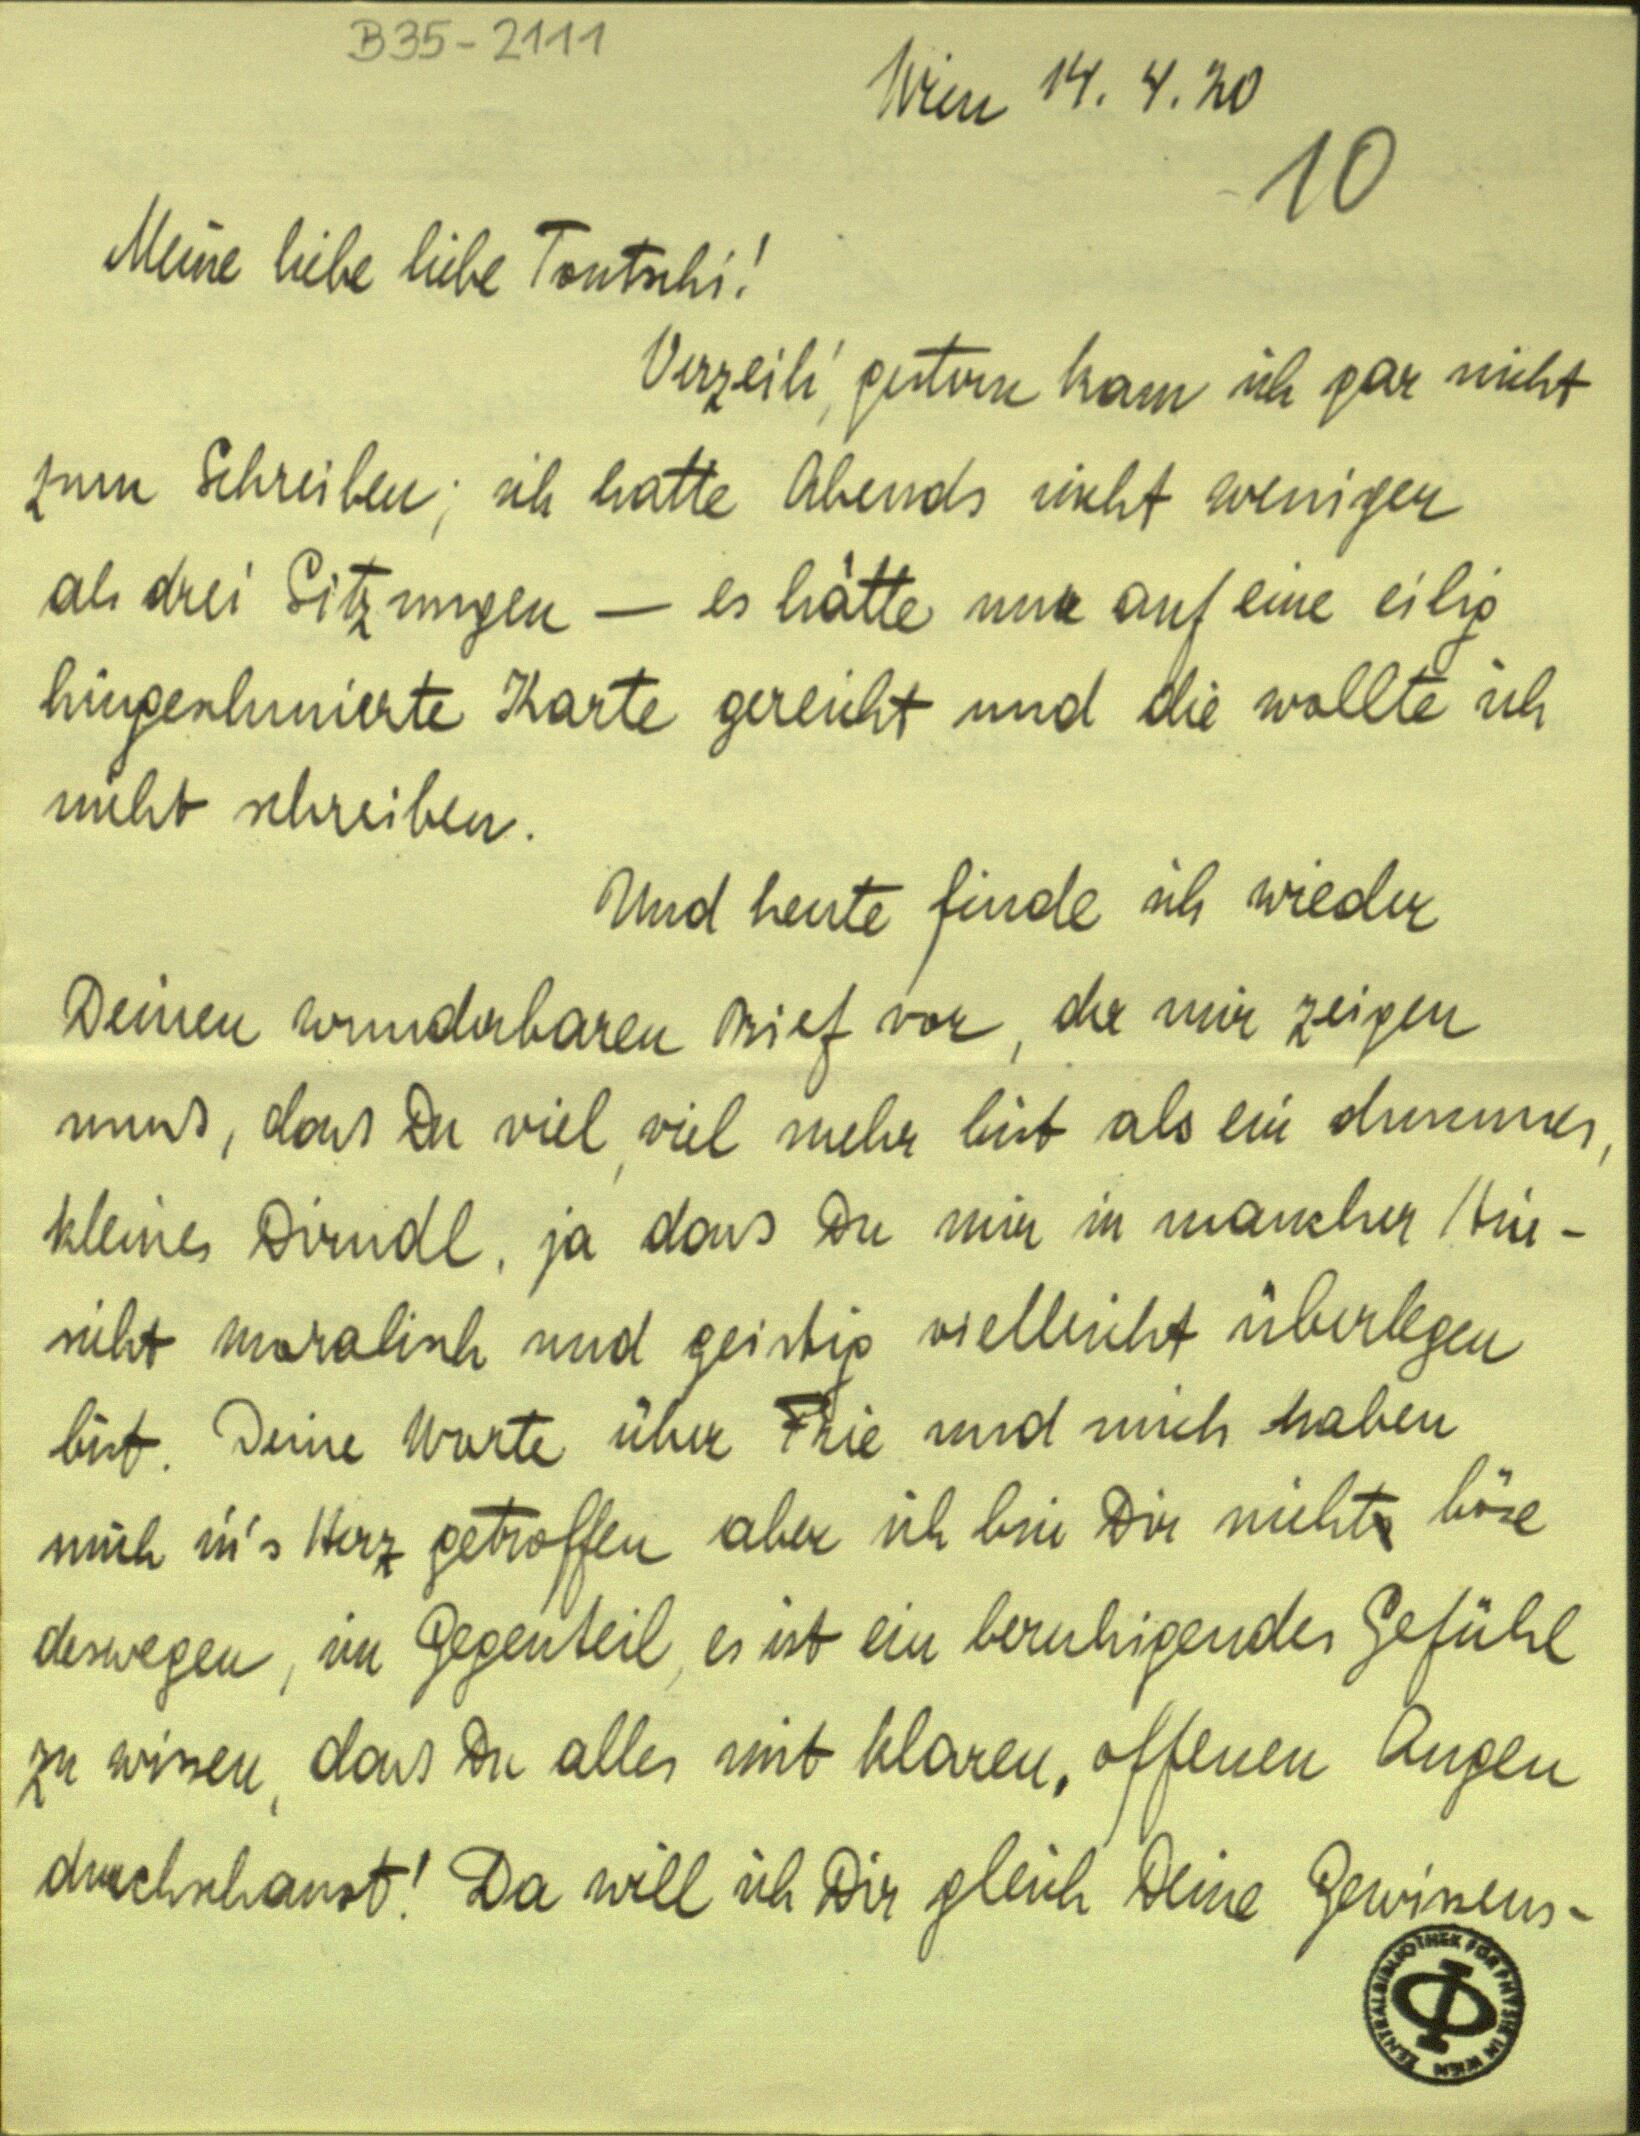 B35-2111
Wien 14. 4. 20
10
Meine liebe liebe Tontschi!
Verzeih', gestern kam ich gar nicht
zum Schreiben; ich hatte Abends nicht weniger
als drei Sitzungen — es hätte nur auf eine eilig
hingeschmierte Karte gereicht und die wollte ich
nicht schreiben.
Und heute finde ich wieder
Deinen wunderbaren Brief vor, der mir zeigen
muss, dass Du viel, viel mehr bist als ein dummes,
kleines Dirndl, ja dass Du mir in mancher Hin-
sicht moralisch und geistig vielleicht überlegen
bist. Deine Worte über und mich haben
mich in's Herz getroffen aber ich bin Dir nicht böse
deswegen, im Gegenteil, es ist ein beruhigendes Gefühl
zu wissen, dass Du alles mit klaren, offenen Augen
durchschaust! Da will ich Dir gleich Deine Gewissens-
ZENTRALBIBLIOTHEK FÜR PHYSIK IN WIEN